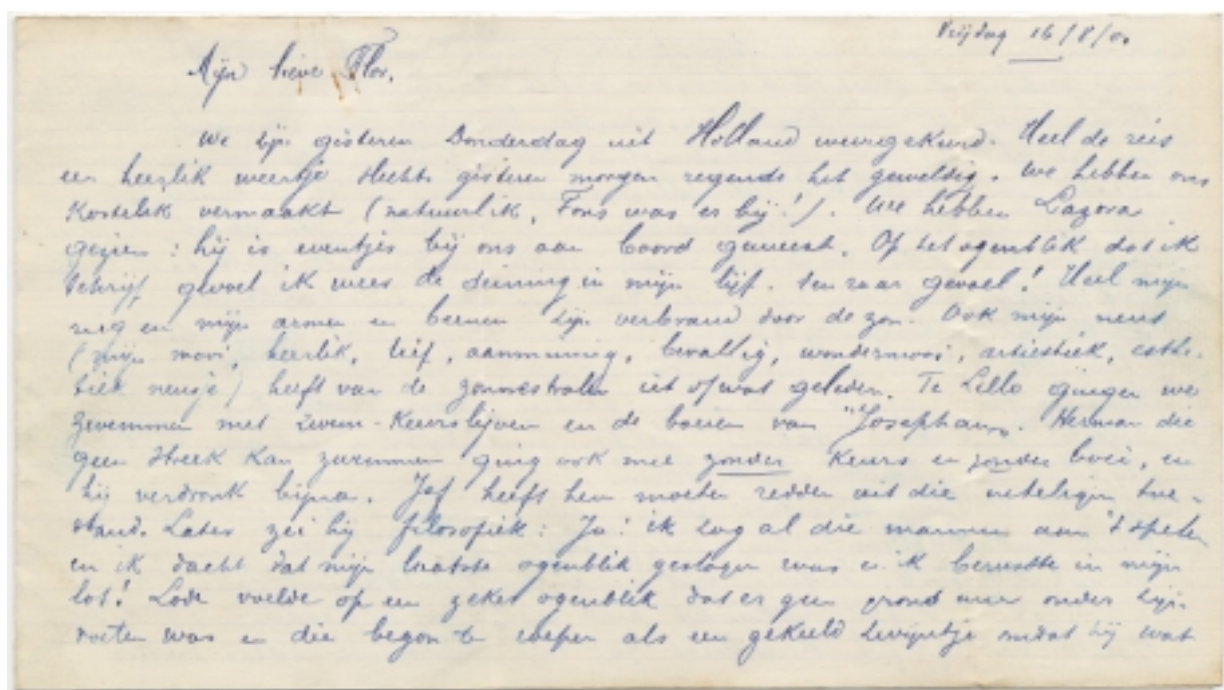 Vrijdag 16/8/0.
Mijn lieve Flor,
We zijn gisteren Donderdag uit Holland weergekeerd. Heel de reis
een heerlik weertje slechts gisteren morgen regende het geweldig. We hebben ons
kostelik vermaakt (natuurlik, Fons was er bij!). We hebben Lazora
gezien: hij is eventjes bij ons aan boord geweest. Op het ogenblik dat ik
schrijf, gevoel ik weer de deining in mijn lijf. Een raar gevoel! Heel mijn
rug en mijn armen en benen zijn verbrand door de zon. Ook mijn neus
(mijn mooi, heerlik, lief, aanminnig, bevallig, wondermooi, artiestiek, esthe-
tiek neusje) heeft van de zonnestralen iet of wat geleden. Te Lillo gingen we
zwemmen met zwem-keurslijven en de boeien van "Josephan". Herman die
geen streek kan zwemmen ging ook mee zonder keurs en zonder boei, en
hij verdronk bijna. Jef heeft hem moeten redden uit die netelige toe-
stand. Later zei hij filosofiek: Ja! ik zag al die mannen aan 't spelen
en ik dacht dat mijn laatste ogenblik geslagen was en ik berustte in mijn
lot! Lode voelde op een zeker ogenblik dat er geen grond meer onder zijn
voeten was en die begon te roepen als een gekeeld zwijntje omdat hij wat